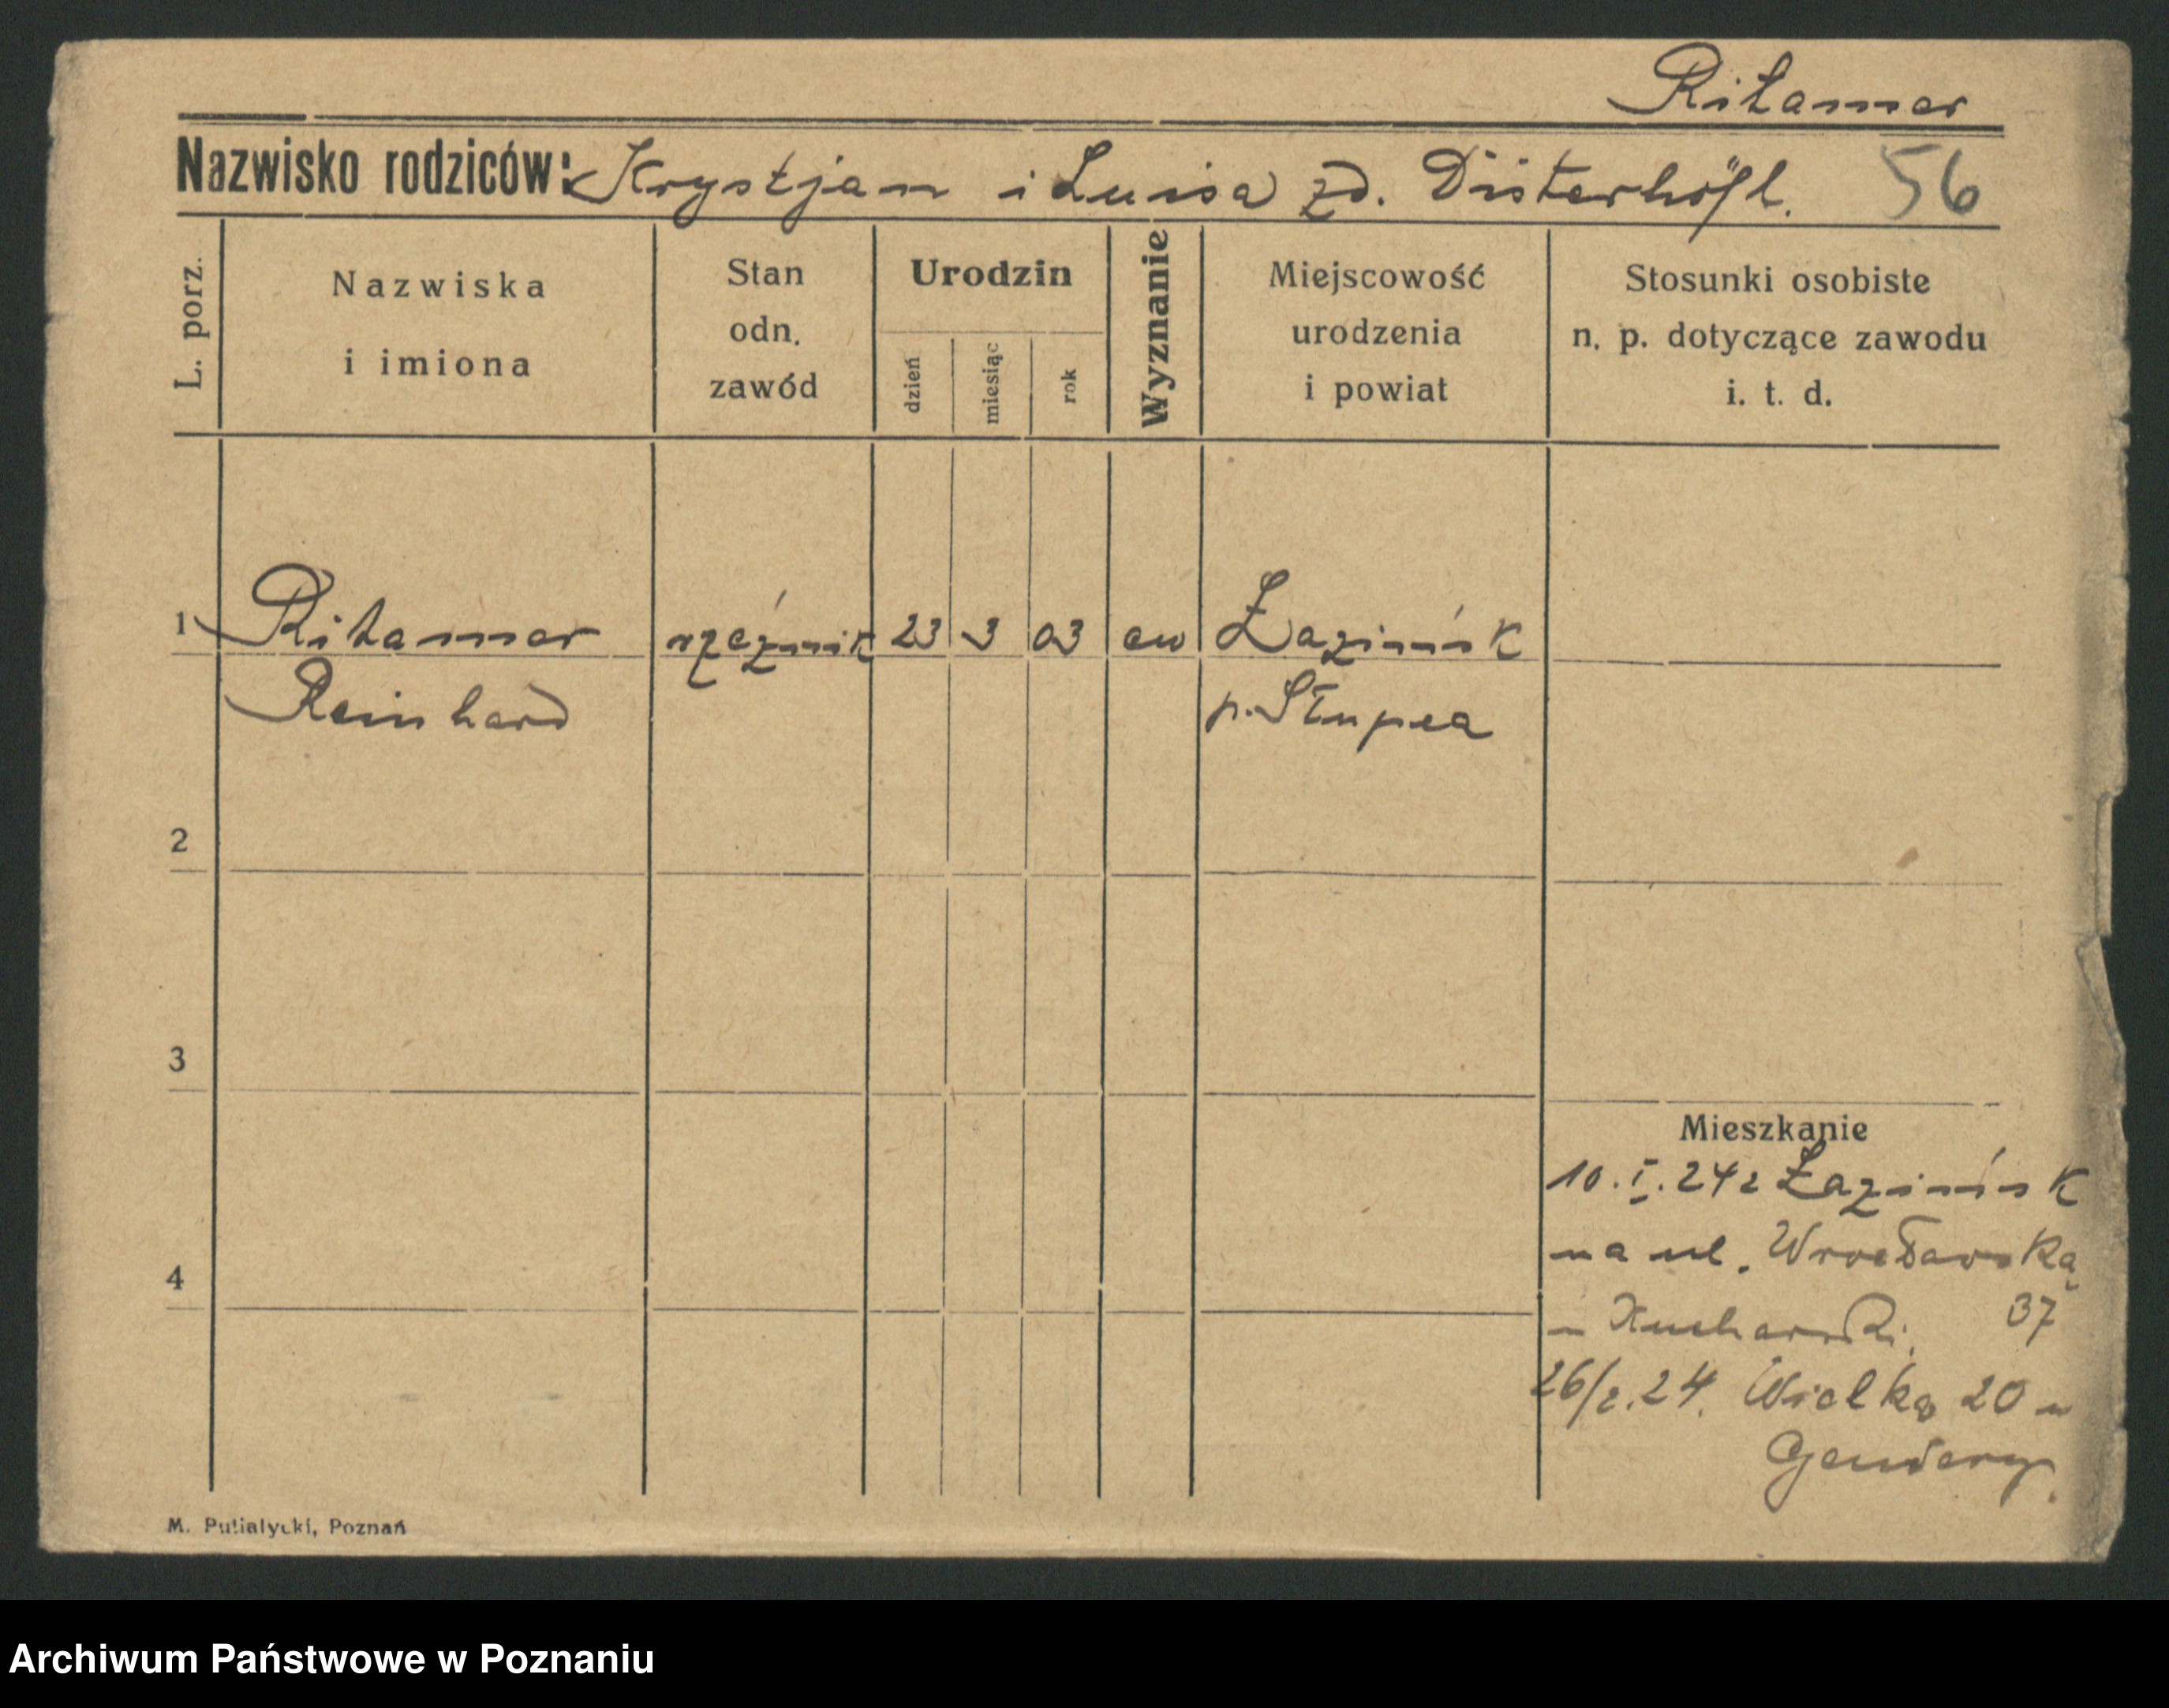 Ritamer
Nazwisko rodziców: Krystjan i Luisa zd. Düsterhöft. 56
L. porz.
Nazwiska i imiona
Stan odn. zawód
Urodzin
dzień
miesiąc
rok
Wyznanie
Miejscowość urodzenia i powiat
Stosunki osobiste n. p. dotyczące zawodu i. t. d.
1 Ritamer rzeźnik 23 3 03 ew Łazińsk
Reinhard p. Słupca
2
3
Mieszkanie
10.I.24 z Łazińsk
na ul. Wrocławską
4
u Kucharski. 37
26/2.24. Wielką 20 u
M. Putiatycki, Poznań
Archiwum Państwowe w Poznaniu